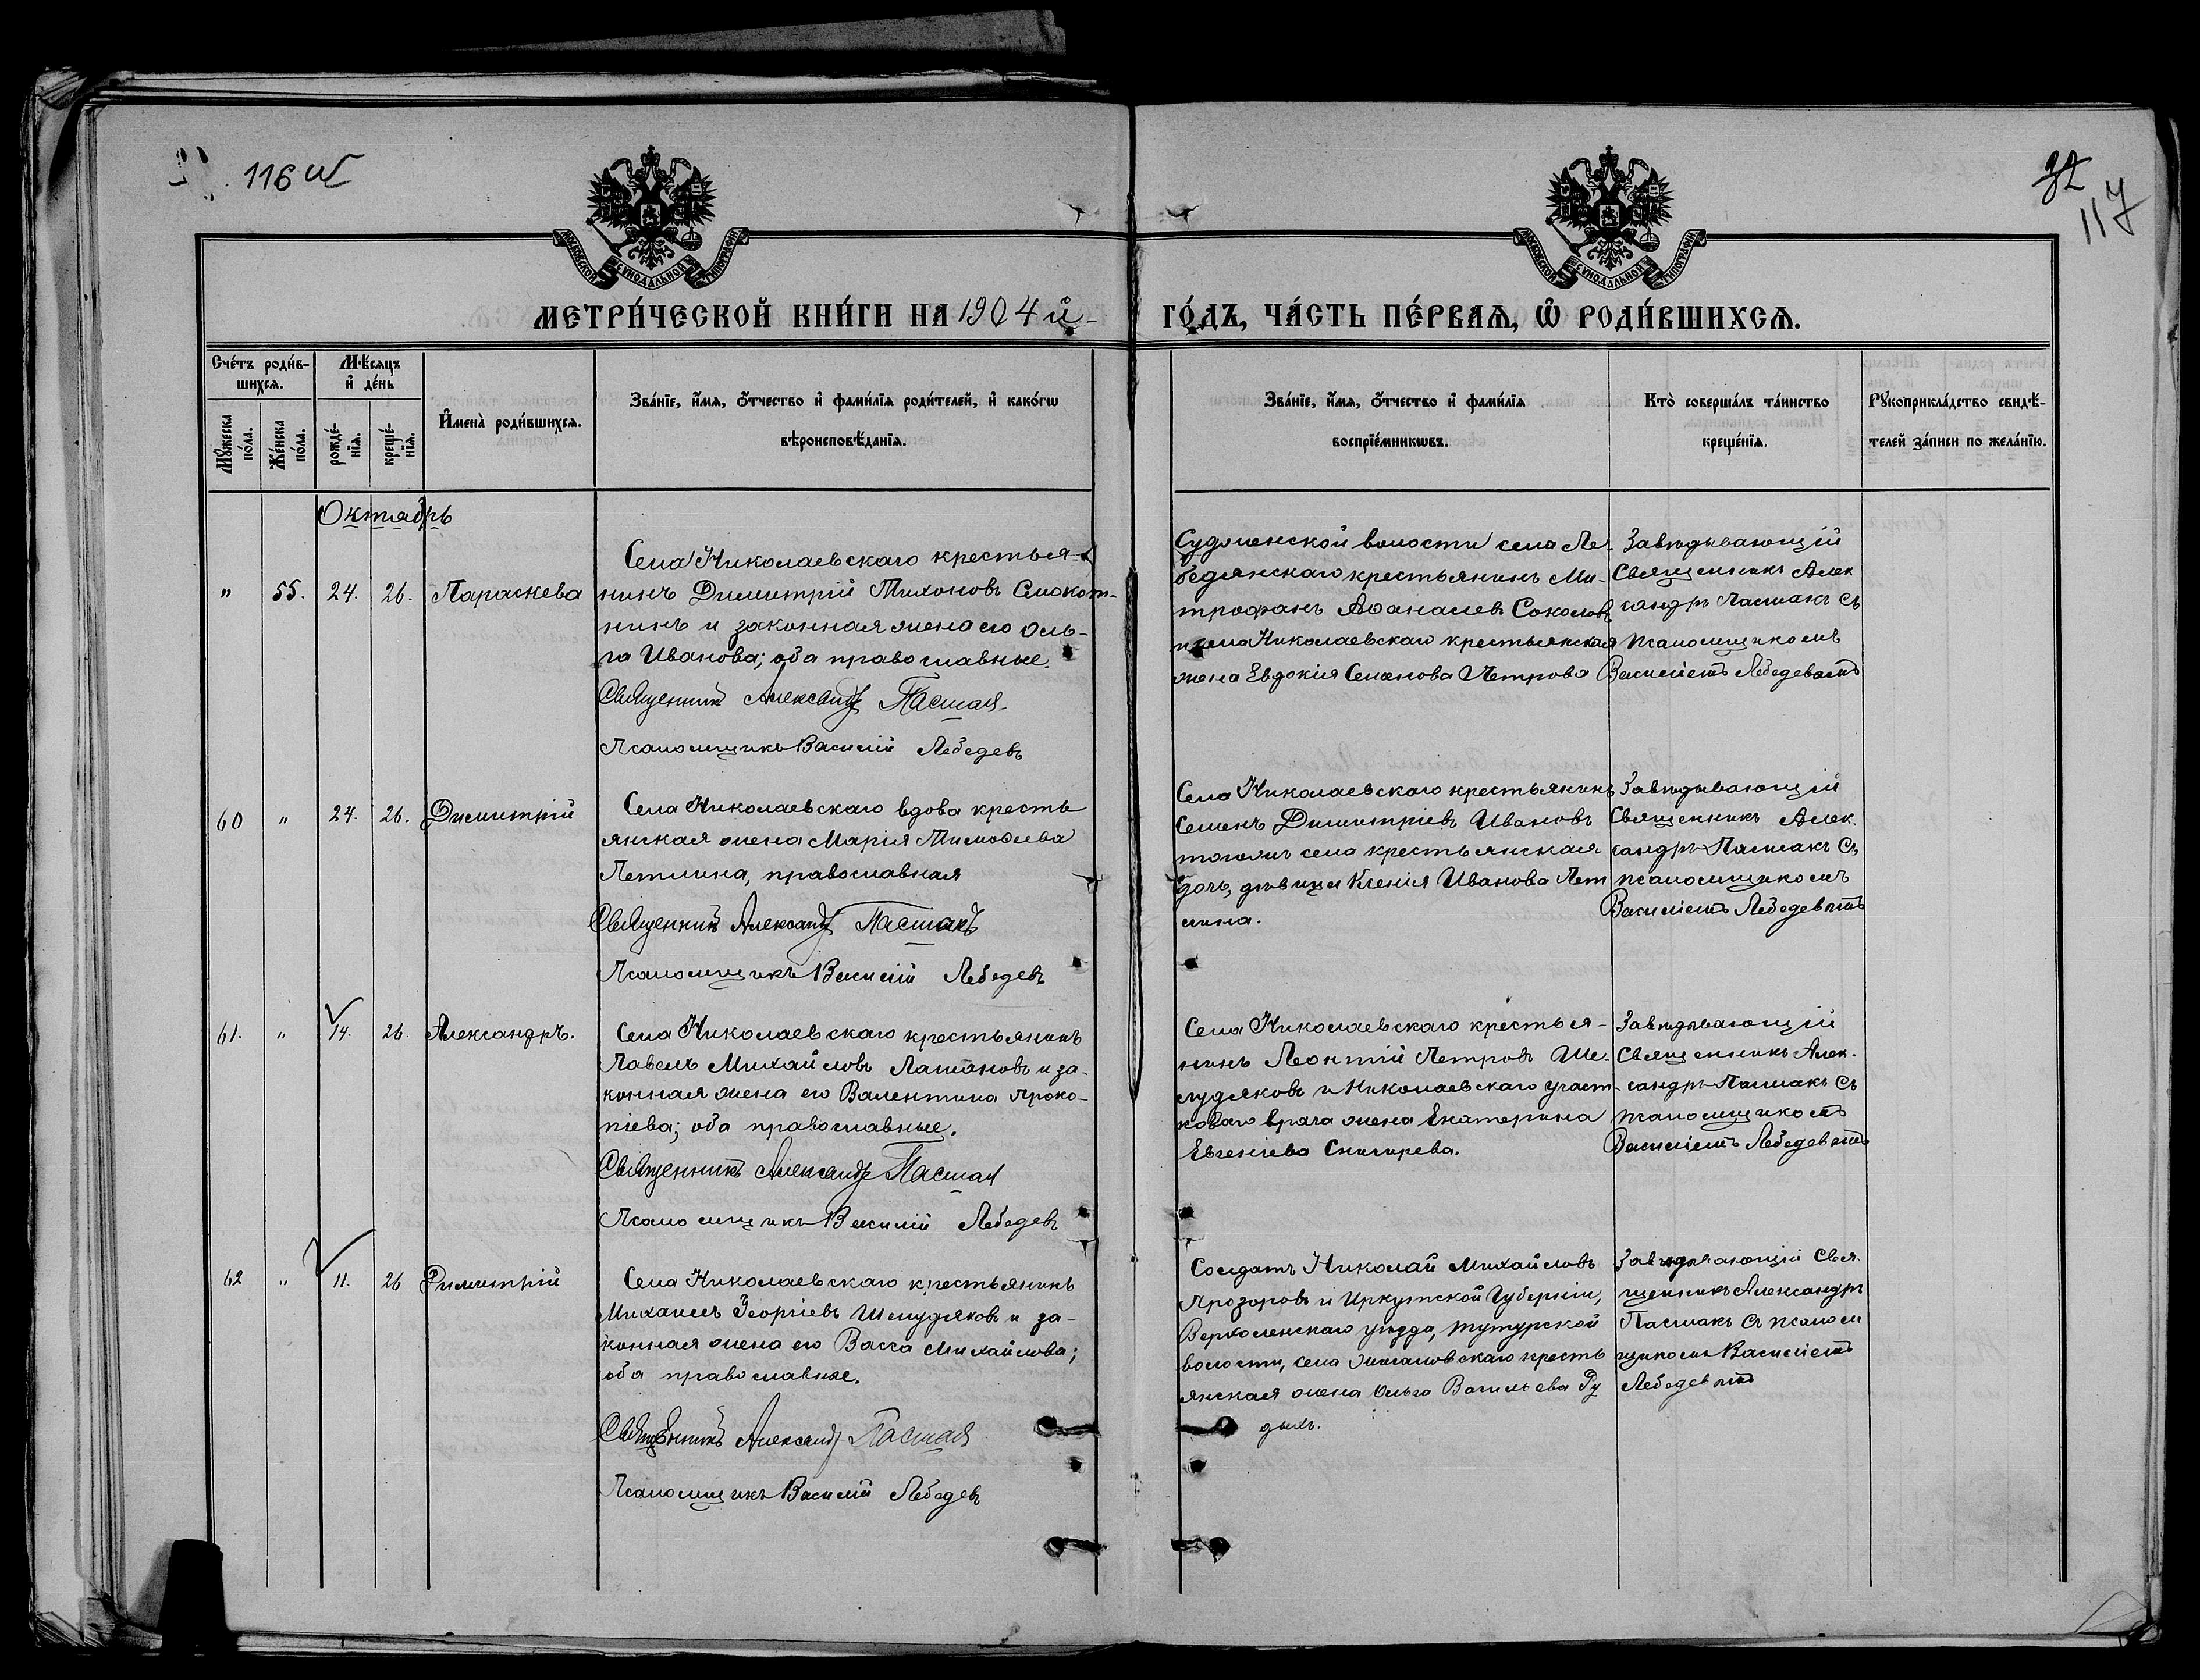 116 об
32
117
МОСКОВСКОЙ СѴНОДАЛЬНОЙ ТИПОГРАФІИ
МОСКОВСКОЙ СѴНОДАЛЬНОЙ ТИПОГРАФІИ
МЕТРИ́ЧЕСКОЙ КНИ́ГИ НА 1904 й
ГО́ДЪ, ЧА́СТЬ ПЕ́РВАѦ, Ѡ҆ РОДИ́ВШИХСѦ.
Сче́тъ роди́в-
шихсѧ.
Мѣ́сѧцъ
и҆ де́нь
Мꙋ́жеска
по́ла.
Же́нска
по́ла.
рожде́-
нїѧ.
креще́-
нїѧ.
И҆мена̀ роди́вшихсѧ.
Зва́нїе, и҆́мѧ, ѻ҆́тчество и҆ фами́лїѧ роди́телей, и҆ како́гѡ
вѣроисповѣ́данїѧ.
Зва́нїе, и҆́мѧ, ѻ҆́тчество и҆ фами́лїѧ
воспрїе́мникѡвъ.
Кто̀ соверша́лъ та́инство
креще́нїѧ.
Рꙋкоприкла́дство свидѣ́-
телей за́писи по жела́нїю.
Октябрь
" 55. 24. 26. Параскева
Села Николаевскаго крестья-
нинъ Димитрій Тихоновъ
нинъ и законная жена его Оль-
га Иванова; оба православные.
Священник Александръ Пасмак
Псаломщикъ Василій Лебедевъ
Судженской волости села Ле-
бедянскаго крестьянинъ Ми-
трофанъ Аѳанасіев Соколовъ
и села Николаевскаго крестьянская
жена Евдокія Семенова Петрова
Завѣдывающій
Священникъ Алек
сандръ Пасмакъ съ
псаломщикомъ
Василіемъ Лебедевымъ
60 " 24. 26. Димитрій
Села Николаевскаго вдова кресть
янская жена Марія Тимоѳеева
Летмина, православная
Священникъ Александръ Пасмакъ
Псаломщикъ Василій Лебедевъ
Села Николаевскаго крестьянинъ
Семенъ Димитріевъ Ивановъ
тогожъ села крестьянская
дочь, дѣвица Ксенія Иванова Лет
мина.
Завѣдывающій
Священникъ Алек.
сандръ Пасмакъ съ
псаломщикомъ
Василіемъ Лебедевымъ
61. " 14. 26. Александръ.
Села Николаевскаго крестьянинъ
Павелъ Михайловъ и за-
конная жена его Валентина Проко-
піева; оба православные.
Священникъ Александръ Пасмак
Псаломщикъ Василій Лебедевъ
Села Николаевскаго крестья-
нинъ Леонтій Петровъ Ше-
лудяковъ и Николаевскаго участ-
коваго врача жена Екатерина
Евгеніева Снигирева.
Завѣдывающій
Священникъ Алек.
сандръ Пасмакъ съ
псаломщикомъ
Василіемъ Лебедевымъ
62 " 11. 26 Димитрій
Села Николаевскаго крестьянинъ
Михаилъ Георгіевъ Шелудяковъ и за-
конная жена его Васса Михайлова;
оба православные.
Священникъ Александръ Пасмак
Псаломщикъ Василій Лебедевъ
Солдатъ Николай Михайловъ
Прозоровъ и Иркутской Губерніи,
Верхоленскаго уѣзда, Тутурской
волости, села Жигаловскаго кресть
янская жена Ольга Васильева Ру
дыхъ.
Завѣдывающій Свя-
щенникъ Александръ
Пасмакъ съ псалом
щикомъ Василіемъ
Лебедевымъ